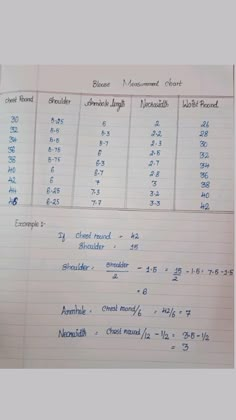 Blouse Measurement chart
Chest Round Shoulder Armhole Length Neckwidth Waist Round
30 5.25 5 2 26
32 5.5 5.3 2.2 28
34 5.5 5.7 2.3 30
36 5.75 6 2.5 32
38 5.75 6.3 2.7 34
40 6 6.7 2.8 36
42 6 7 3 38
44 6.25 7.3 3.2 40
46 6.25 7.7 3.3 42
Example :
If Chest round = 42
Shoulder = 15
Shoulder = Shoulder/2 - 1.5 = 15/2 - 1.5 = 7.5 - 1.5
= 6
Armhole = Chest round/6 = 42/6 = 7
Neckwidth = Chest round/12 - 1/2 = 3.5 - 1/2
= 3